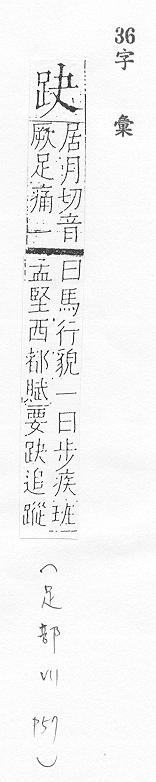 36字 彙
趹
居月切音
厥足痛一
曰馬行貌一曰步疾班
孟堅西都賦要趹追蹤
(足部 VII P57)